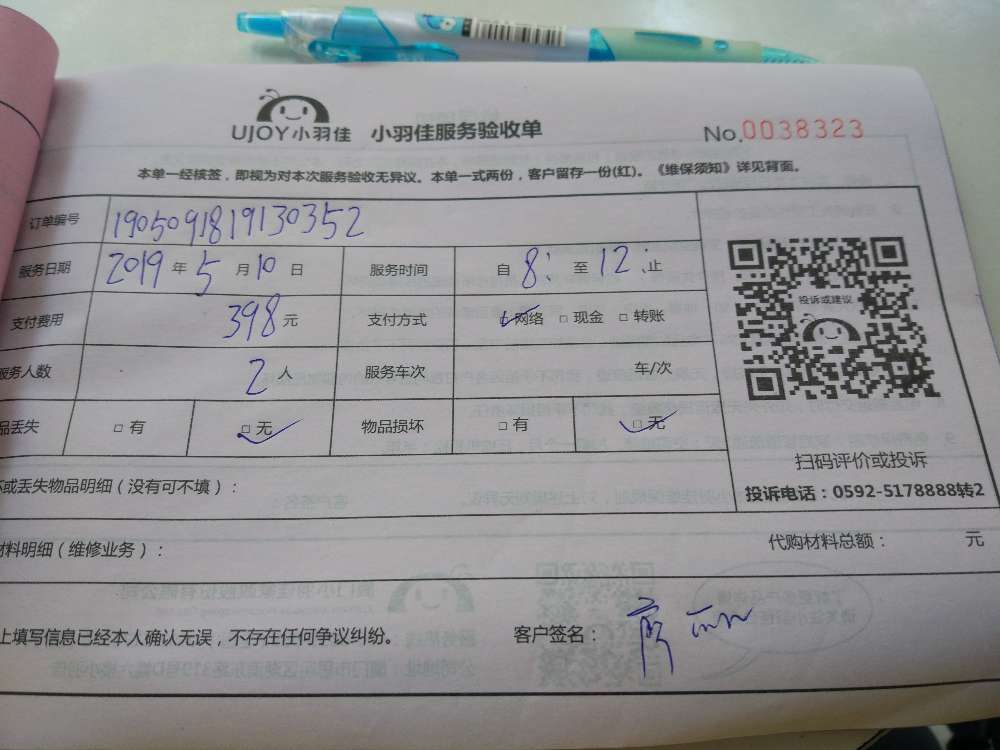 UJOY小羽佳 小羽佳服务验收单 No.0038323
本单一经核签，即视为对本次服务验收无异议。本单一式两份，客户留存一份(红)。《维保须知》详见背面。
订单编号 1905091819130352
服务日期 2019年5月10日 服务时间 自8:至12:止
支付费用 398元 支付方式 □网络 □现金 □转账
服务人数 2人 服务车次 车/次
品丢失 □有 □无 物品损坏 □有 □无
投诉或建议
扫码评价或投诉
投诉电话：0592-5178888转2
坏或丢失物品明细（没有可不填）：
材料明细（维修业务）： 代购材料总额： 元
上填写信息已经本人确认无误，不存在任何争议纠纷。 客户签名：